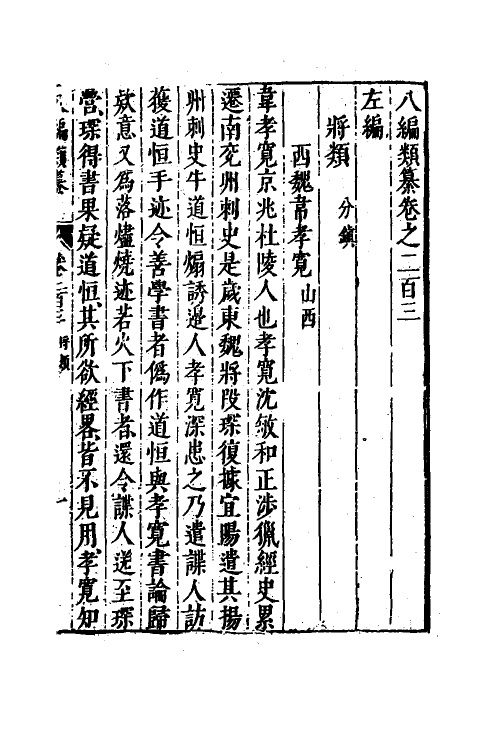 八編類纂卷之二百三
左編
將類 分鎮
西魏韋孝寬 山西
韋孝寬京兆杜陵人也孝寬沈敏和正涉獵經史累
遷南兖州刺史是歲東魏將段琛復據宜陽遣其揚
州刺史牛道恒煽誘邊人孝寬深患之乃遣諜人訪
獲道恒手迹令善學書者僞作道恒與孝寬書論歸
欵意又爲落燼燒迹若火下書者還令諜人送至琛
營琛得書果疑道恒其所欲經畧皆不見用孝寬知
編類纂 卷二百三 將類 一